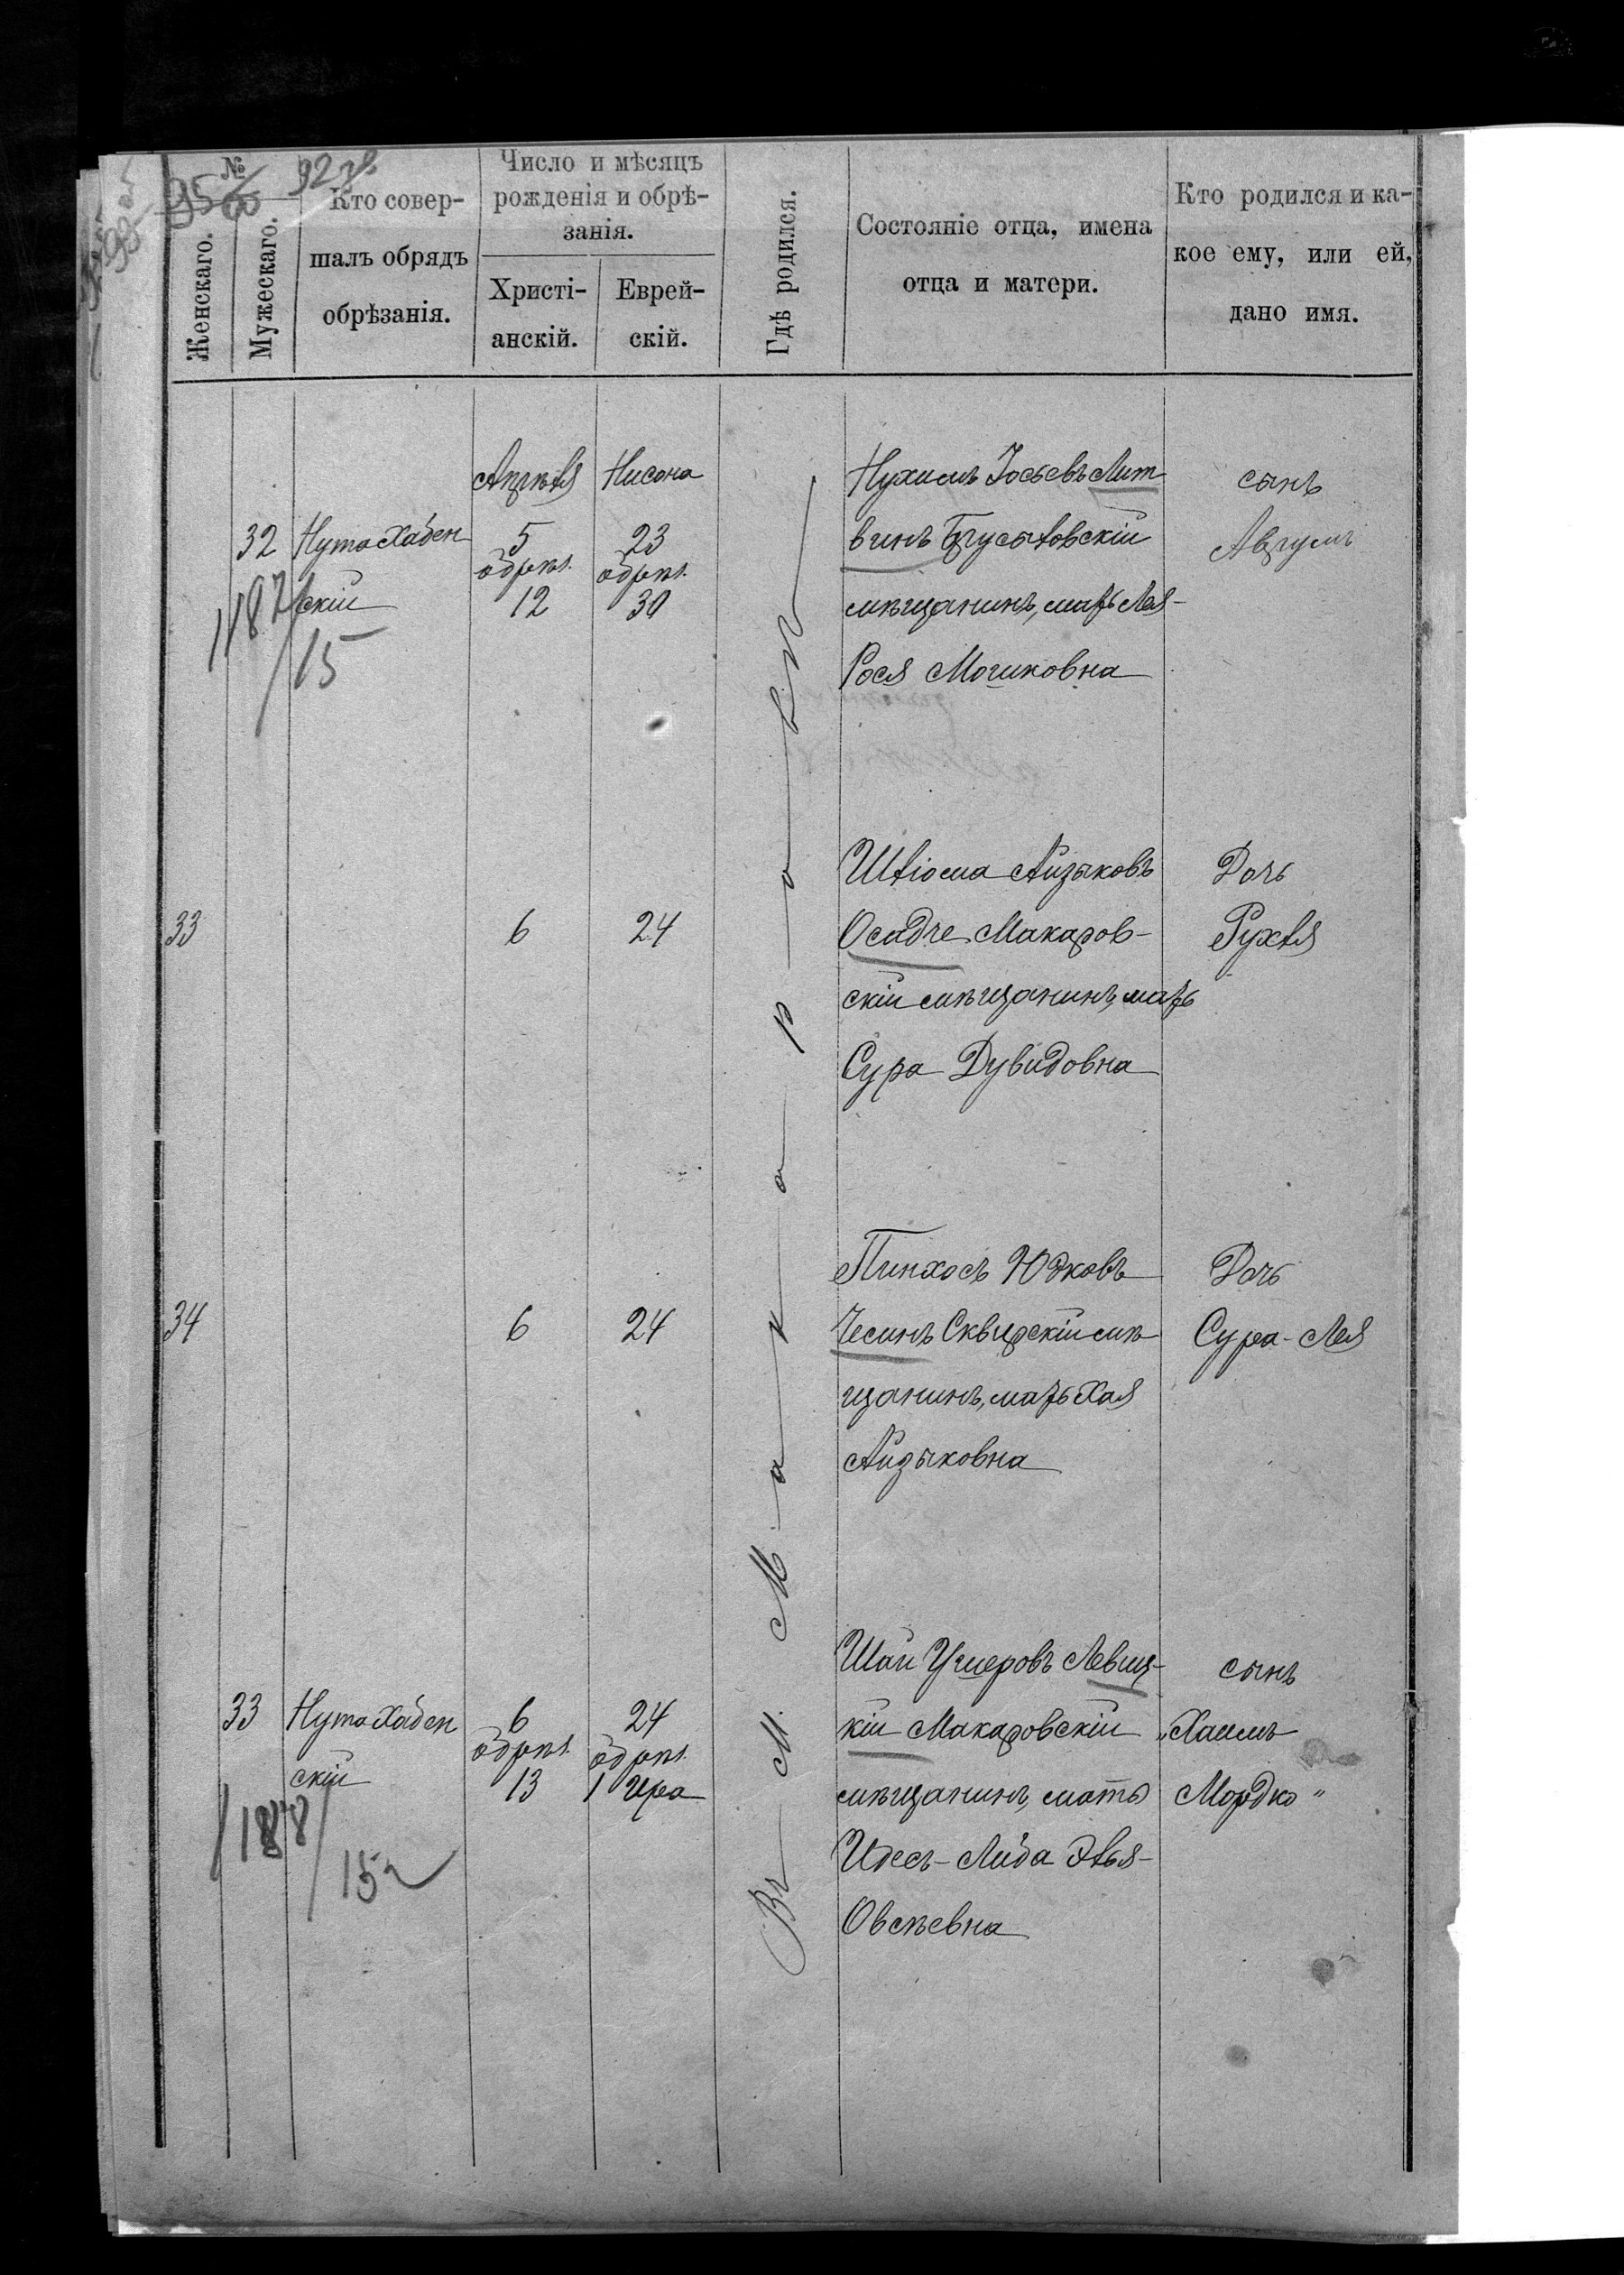 №
Женскаго.
Мужескаго.
Кто совер-
шалъ обрядъ
обрѣзанія.
Число и мѣсяцъ
рожденія и обрѣ-
занія.
Христі-
анскій.
Еврей-
скій.
Гдѣ родился.
Состояніе отца, имена
отца и матери.
Кто родился и ка-
кое ему, или ей,
дано имя.
Въ М. Макаровѣ
32
Нута Хабен
скій
1187
15
Апрѣля
5
обрѣз.
12
Нисона
23
обрѣз.
30
Нухимъ Іосьевъ Лит-
винъ Брусиловскій
мѣщанинъ, мать Лея-
Рося Мошковна
сынъ
Аврумъ
33
6
24
Шліома Айзыковъ
Осадче Макаров-
скій мѣщанинъ, мать
Сура Дувидовна
Дочь
Рухля
34
6
24
Пинхосъ Юдковъ
Чесинъ Сквирскій мѣ-
щанинъ, мать Хая
Айзыковна
Дочь
Сура-Лея
33
Нута Хабен
скій
1188
15
6
обрѣз.
13
24
обрѣз.
1 Ира
Шаи Ушеровъ Левиц-
кій Макаровскій
мѣщанинъ, мать
Идесъ-Либа Элья-
Овсѣевна
сынъ
„Хаимъ
Мордко"